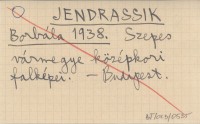 JENDRASSIK
Borbála 1938. Szepes
vármegye középkori
falképei. – Budapest.